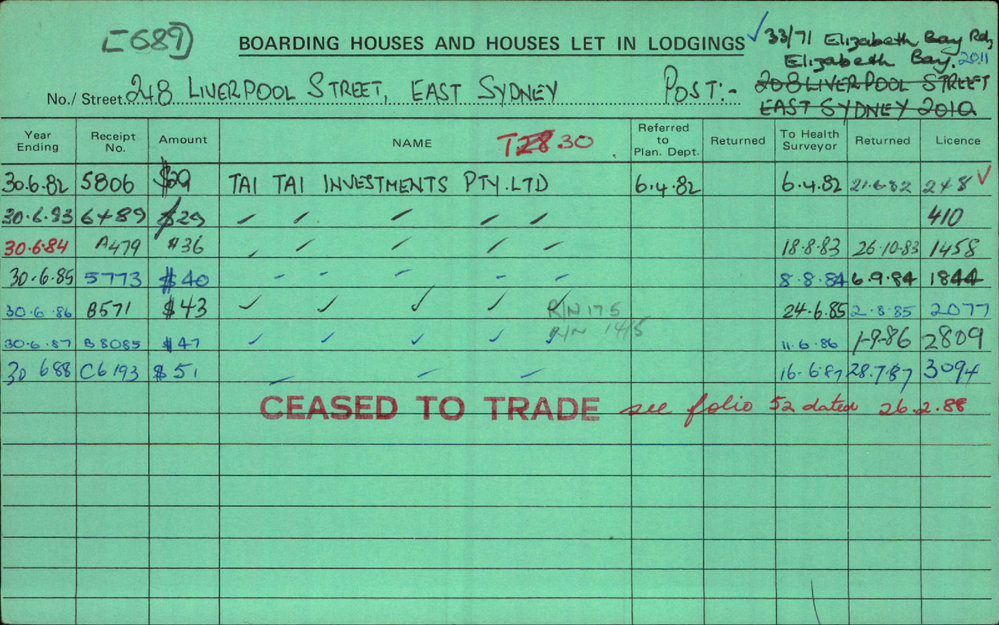 [689]
BOARDING HOUSES AND HOUSES LET IN LODGINGS
✓ 33/71 Elizabeth Bay Rd,
Elizabeth Bay. 2011
No./ Street 248 LIVERPOOL STREET, EAST SYDNEY POST:- 208 LIVERPOOL STREET
EAST SYDNEY 2010
Year Ending Receipt No. Amount NAME T28.30 Referred to Plan. Dept. Returned To Health Surveyor Returned Licence
30.6.82 5806 $29 TAI TAI INVESTMENTS PTY. LTD 6.4.82 6.4.82 21.6.82 248 ✓
30.6.83 6489 $29 410
30.6.84 A479 $36 18.8.83 26.10.83 1458
30.6.85 5773 $40 8.8.84 6.9.84 1844
30.6.86 B571 $43 R/N 175 24.6.85 2.8.85 2077
R/N 1415
30.6.87 B8085 $47 11.6.86 1-9-86 2809
30 6 88 C6193 $51 16.6.87 28.7.87 3094
CEASED TO TRADE see folio 52 dated 26.2.88